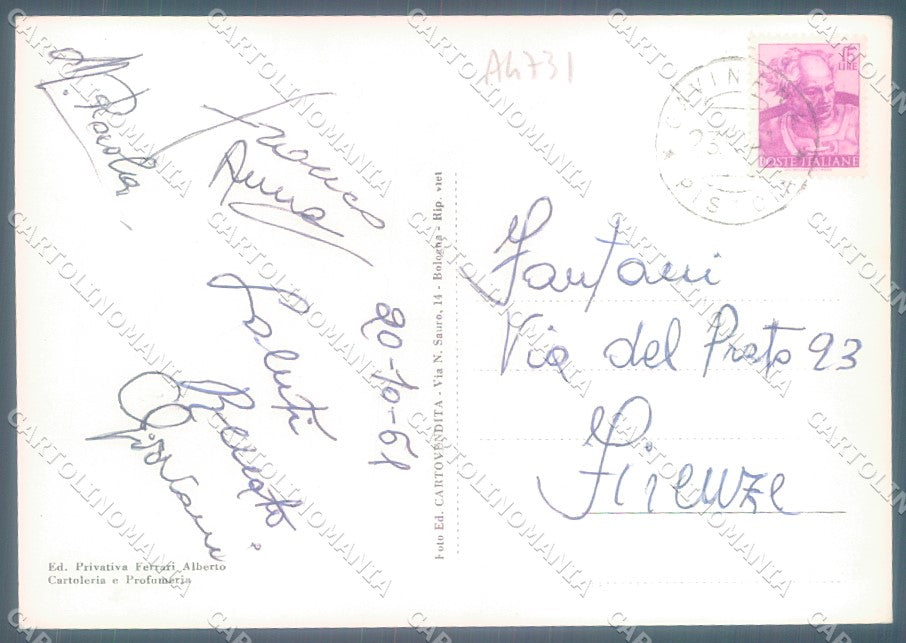 Franco
Anna
Saluti
Giovanni
20-10-61
A4731
15
LIRE
POSTE ITALIANE
Fantani
Via del Prato 93
Firenze
Foto Ed. CARTOVENDITA - Via N. Sauro, 14 - Bologna - Rip. viet
Ed. Privativa Ferrari Alberto
Cartoleria e Profumeria
CARTOLINOMANIA